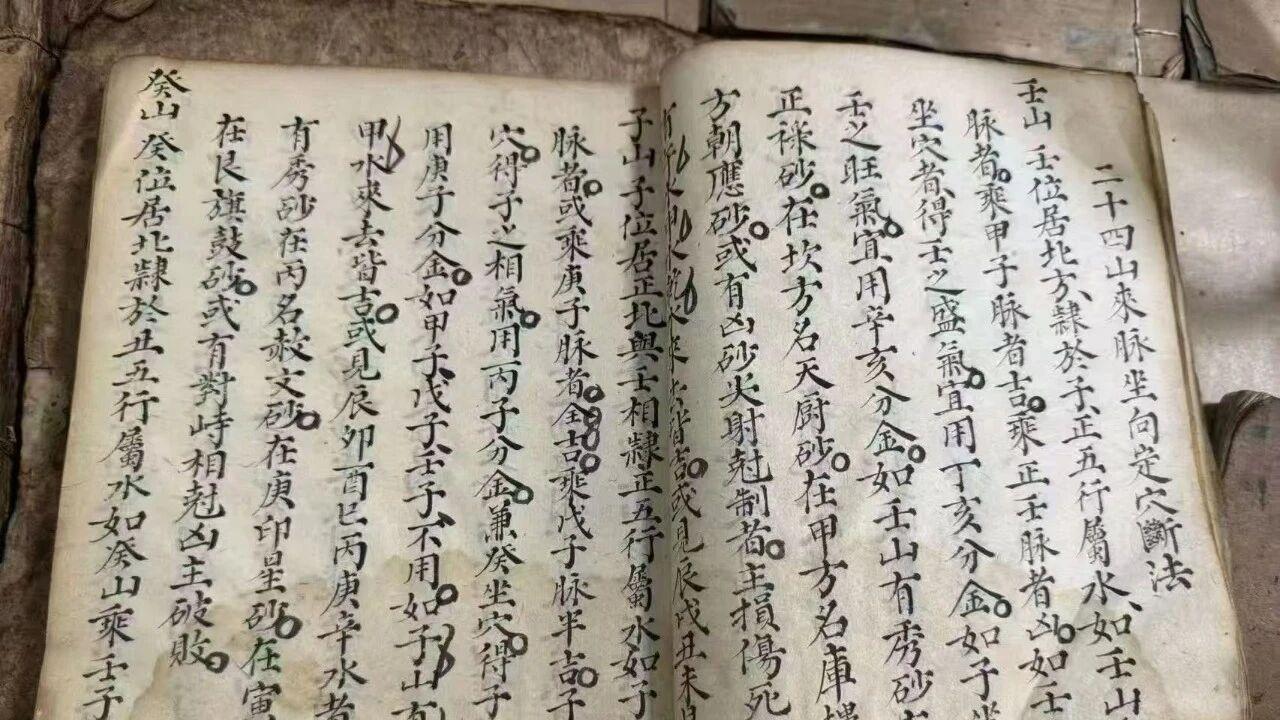 二十四山來脉坐向定穴斷法
壬山 壬位居北方、隸於子、正五行屬水、如壬山
脉者。乘甲子脉者吉。乘正壬脉者凶。如壬
坐穴者、得壬之盛氣。宜用丁亥分金。如子坐
壬之旺氣。宜用辛亥分金。如壬山有秀砂
正祿砂。在坎方名天厨砂。在甲方名庫
方朝應砂。或有凶砂尖射尅制者。主損傷死
水來去皆吉。或見辰戌丑未
子山 子位居正北與壬相隸正五行屬水如子
脉者。或乘庚子脉者。全吉。乘戊子脉半吉。子
穴。得子之相氣。用丙子分金。兼癸坐穴。得子
用庚子分金。如甲子、戊子、壬子、不用。如子山有
甲水來去皆吉。或見辰卯酉巳丙庚辛水者
有秀砂在丙名赦文砂。在庚印星砂。在寅
在艮旗鼓砂。或有對峙相尅凶主破敗。
癸山 癸位居北隸於丑五行屬水如癸山乘壬子